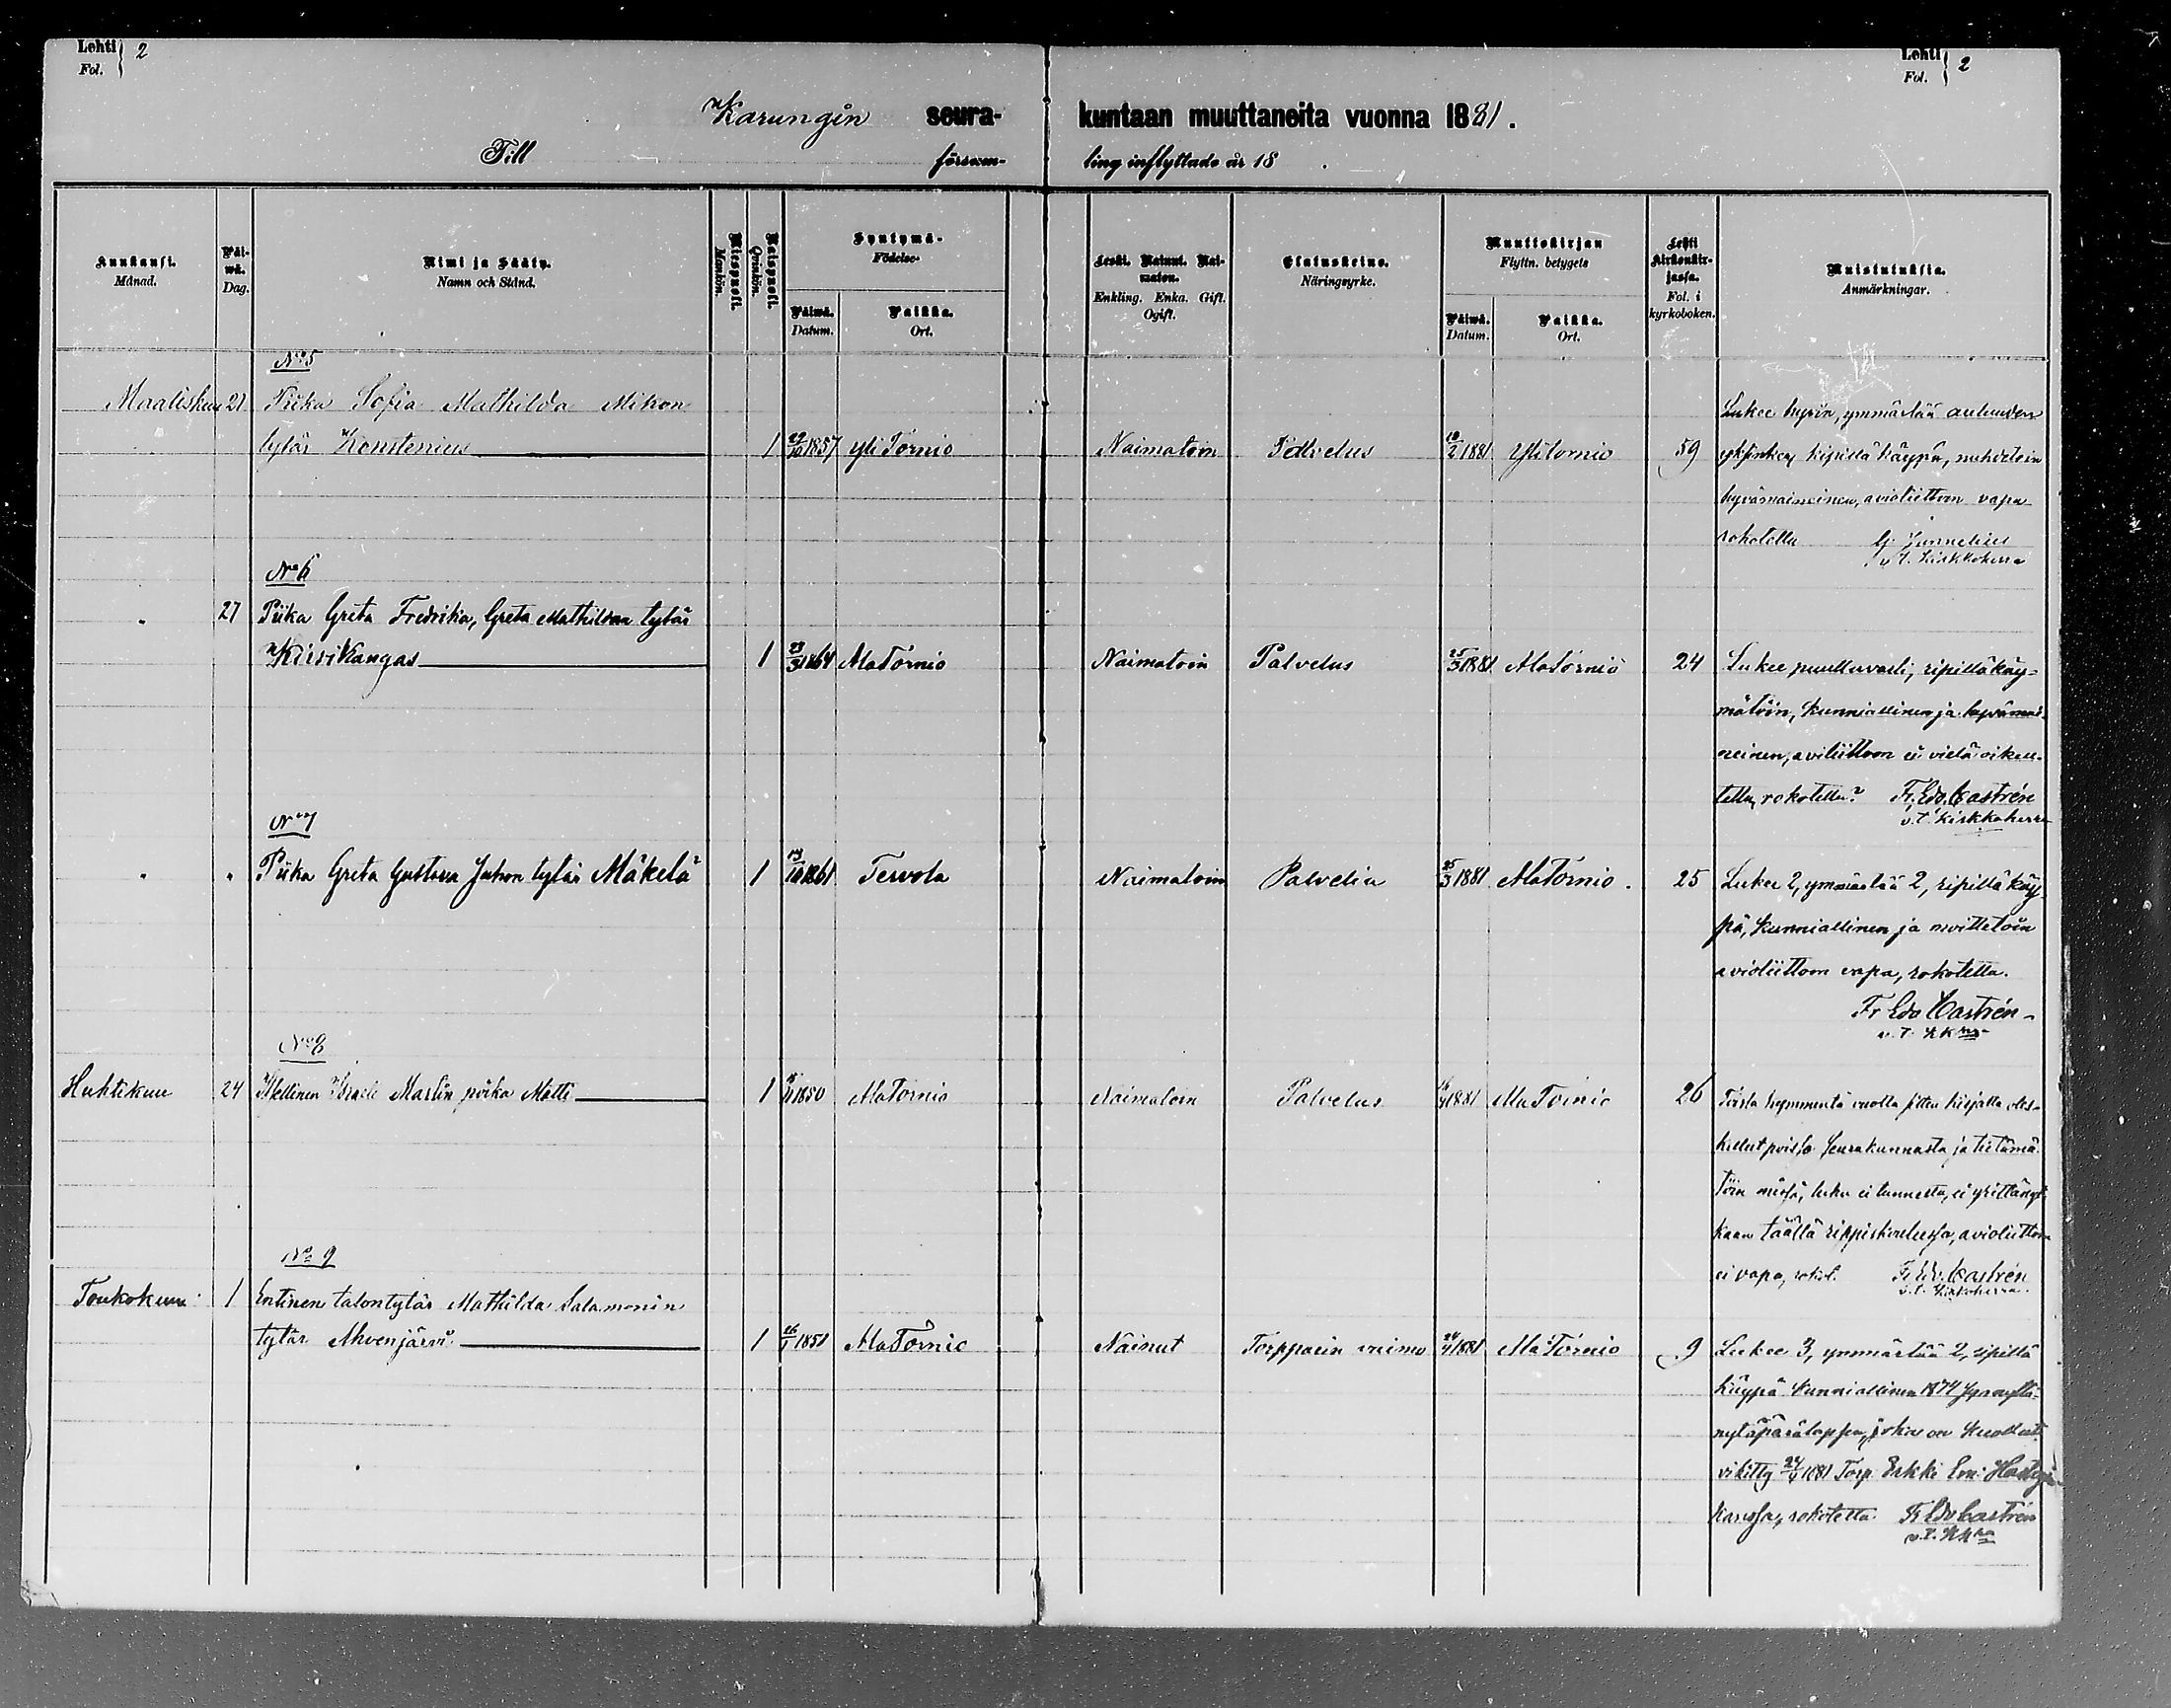 Lehti 2
Fol.
Lehti 2
Fol.
Karungin seura- kuntaan muuttaneita vuonna 1881.
Till försam- ling inflyttade år 18 .
Kuukausi. Månad.
Päi- wä. Dag.
Nimi ja Sääty. Namn och Stånd.
Miespuoli. Mankön.
Naispuoli. Qvinkön.
Syntymä- Födelse-
Päiwä. Datum.
Paikka. Ort.
Leski. Nainut. Nai- maton. Enkling. Enka. Gift. Ogift.
Elatuskeino. Näringsyrke.
Muuttokirjan Flyttn. betygets
Päiwä. Datum.
Paikka. Ort.
Lehti kirkonkir- jassa. Fol. i kyrkoboken.
Muistutuksia. Anmärkningar.
No 5
Maaliskuu 21 Piika Sofia Mathilda Mikon
Lukee hyvin, ymmärtää
tytär Konstenius 1 1857 Yli Tornio Naimatoin Palvelus 2 1881 Ylitornio 59 ripillä käypä, nuhdetoin
hyvämaineinen, avioliittoon vapa
rokotettu
v. t. Kirkkoherra
No 6
" 27 Piika Greta Fredrika, Greta Mathildan tytär
Kiisikangas 1 23/3 1864 AlaTornio Naimatoin Palvelus 25/3 1881 AlaTornio 24 Lukee puuttuvasti, ripillä käy-
mätöin, kunniallinen ja hyvämai-
neinen, aviliittoon ei vielä oikeu-
tettu, rokotettu? Fr. Edv. Castrén
v. t. kirkkoherra
No 7
" " Piika Greta Gustava Juhon tytär Mäkelä 1 1861 Tervola Naimatoin Palvelia 25/3 1881 AlaTornio. 25 Lukee 2, ymmärtää 2, ripillä käy-
pä, kunniallinen ja moittetoin
avioliittoon vapa, rokotettu.
Fr Edv Castrén
v. t. Kkhra
No 8
Huhtikuu 24 Israel Martin poika Matti 1 1850 AlaTornio Naimatoin Palvelus 1881 AlaTornio 26 Toista kymmentä vuotta sitten kirjatta oles-
kellut poissa seurakunnasta ja tietämä-
töin missä, luku ei tunnettu, ei yrittänyt
kaan täällä rippikoulussa, avioliittoon
ei vapa, rokot. Fr. Edv. Castrén
v. t. Kirkoherra.
No 9
Toukokuu 1 Entinen talontytär Mathilda Salamonin
tytär Ahvenjärvi 1 26/1 1851 AlaTornio Nainut Torpparin vaimo 24/4 1881 AlaTornio 9 Lukee 3, ymmärtää 2, ripillä
käypä kunniallinen 1874
joka on kuollut
vihitty 24/4 1881 Torp. Erkki
kanssa, rokotettu Fr Edv Castrén
v. t. Kkhra